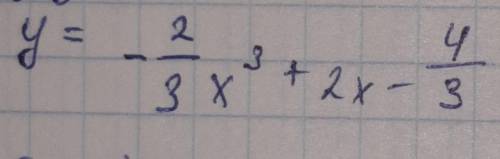 y = -2/3 x³ + 2x - 4/3